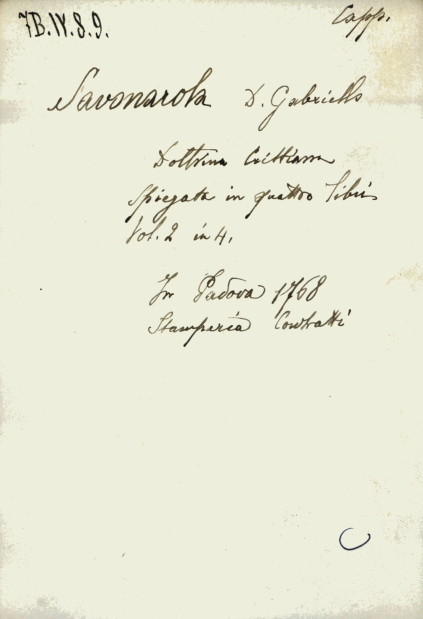 7B.IV.8.9.
Capp.
Savonarola D. Gabriello
Dottrina Cristiana
spiegata in quattro libri
Vol. 2 in 4.
In Padova 1768
Stamperia Conzatti